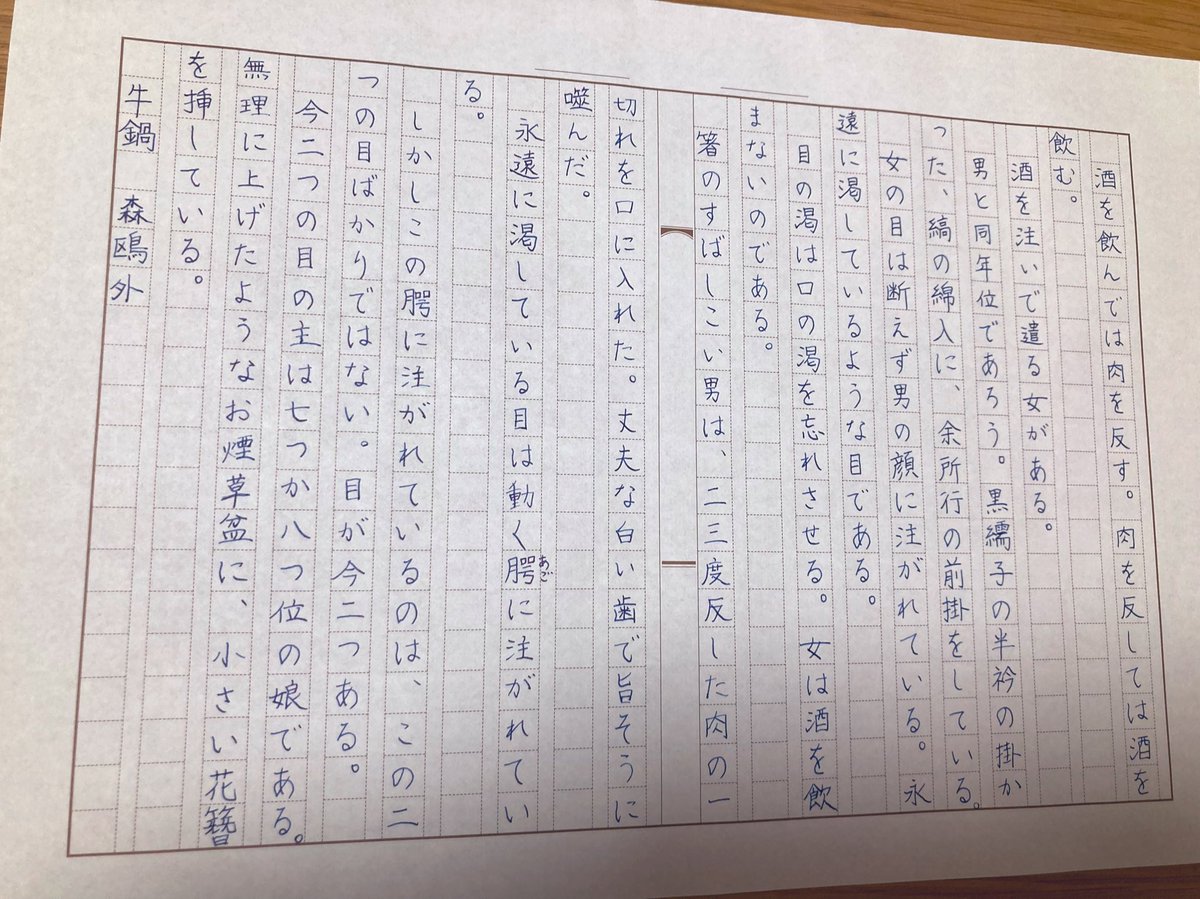 酒を飲んでは肉を反す。肉を反しては酒を
飲む。
酒を注いで遣る女がある。
男と同年位であろう。黒繻子の半衿の掛か
った、縞の綿入に、余所行の前掛をしている。
女の目は断えず男の顔に注がれている。永
遠に渇しているような目である。
目の渇は口の渇を忘れさせる。女は酒を飲
まないのである。
箸のすばしこい男は、二三度反した肉の一
切れを口に入れた。丈夫な白い歯で旨そうに
噬んだ。
永遠に渇している目は動く腭あごに注がれてい
る。
しかしこの腭に注がれているのは、この二
つの目ばかりではない。目が今二つある。
今二つの目の主は七つか八つ位の娘である。
無理に上げたようなお煙草盆に、小さい花簪
を挿している。
牛鍋　森鴎外